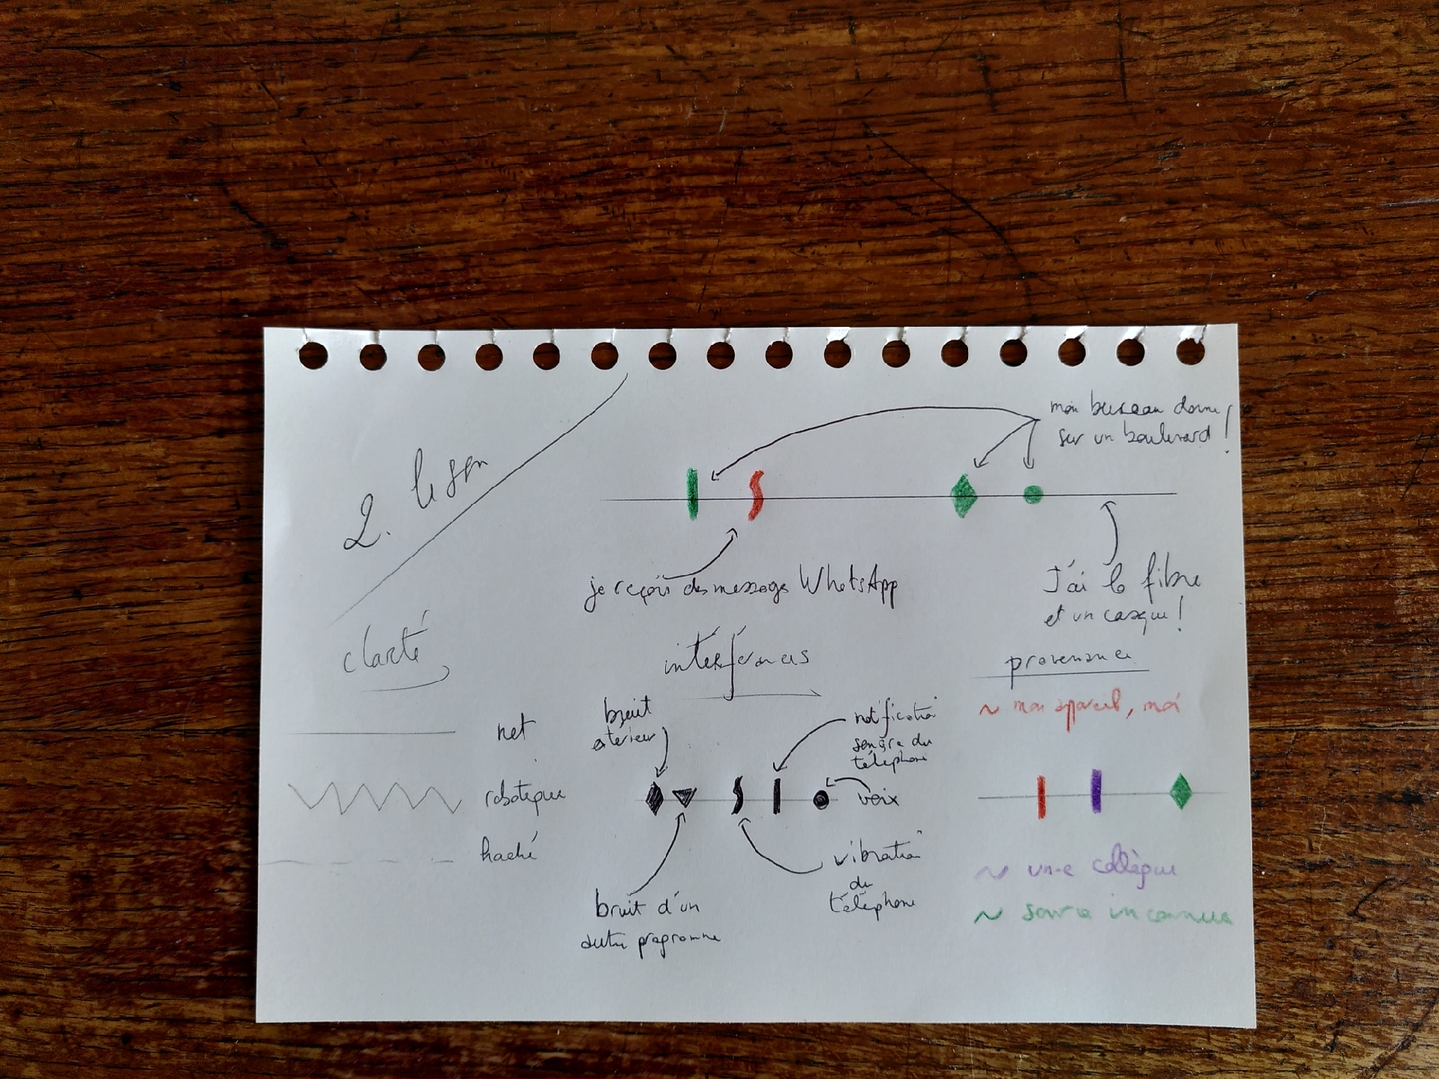 2. le son
mon bureau donne
sur un boulevard !
je reçois des message WhatsApp
J'ai la fibre
et un casque !
clarté
net
robotique
haché
interférences
bruit
exterieur
notification
sonore du
téléphone
voix
vibration
du
téléphone
bruit d'un
autre programme
provenance
~ mon appareil, moi
~ un·e collègue
~ source inconnue